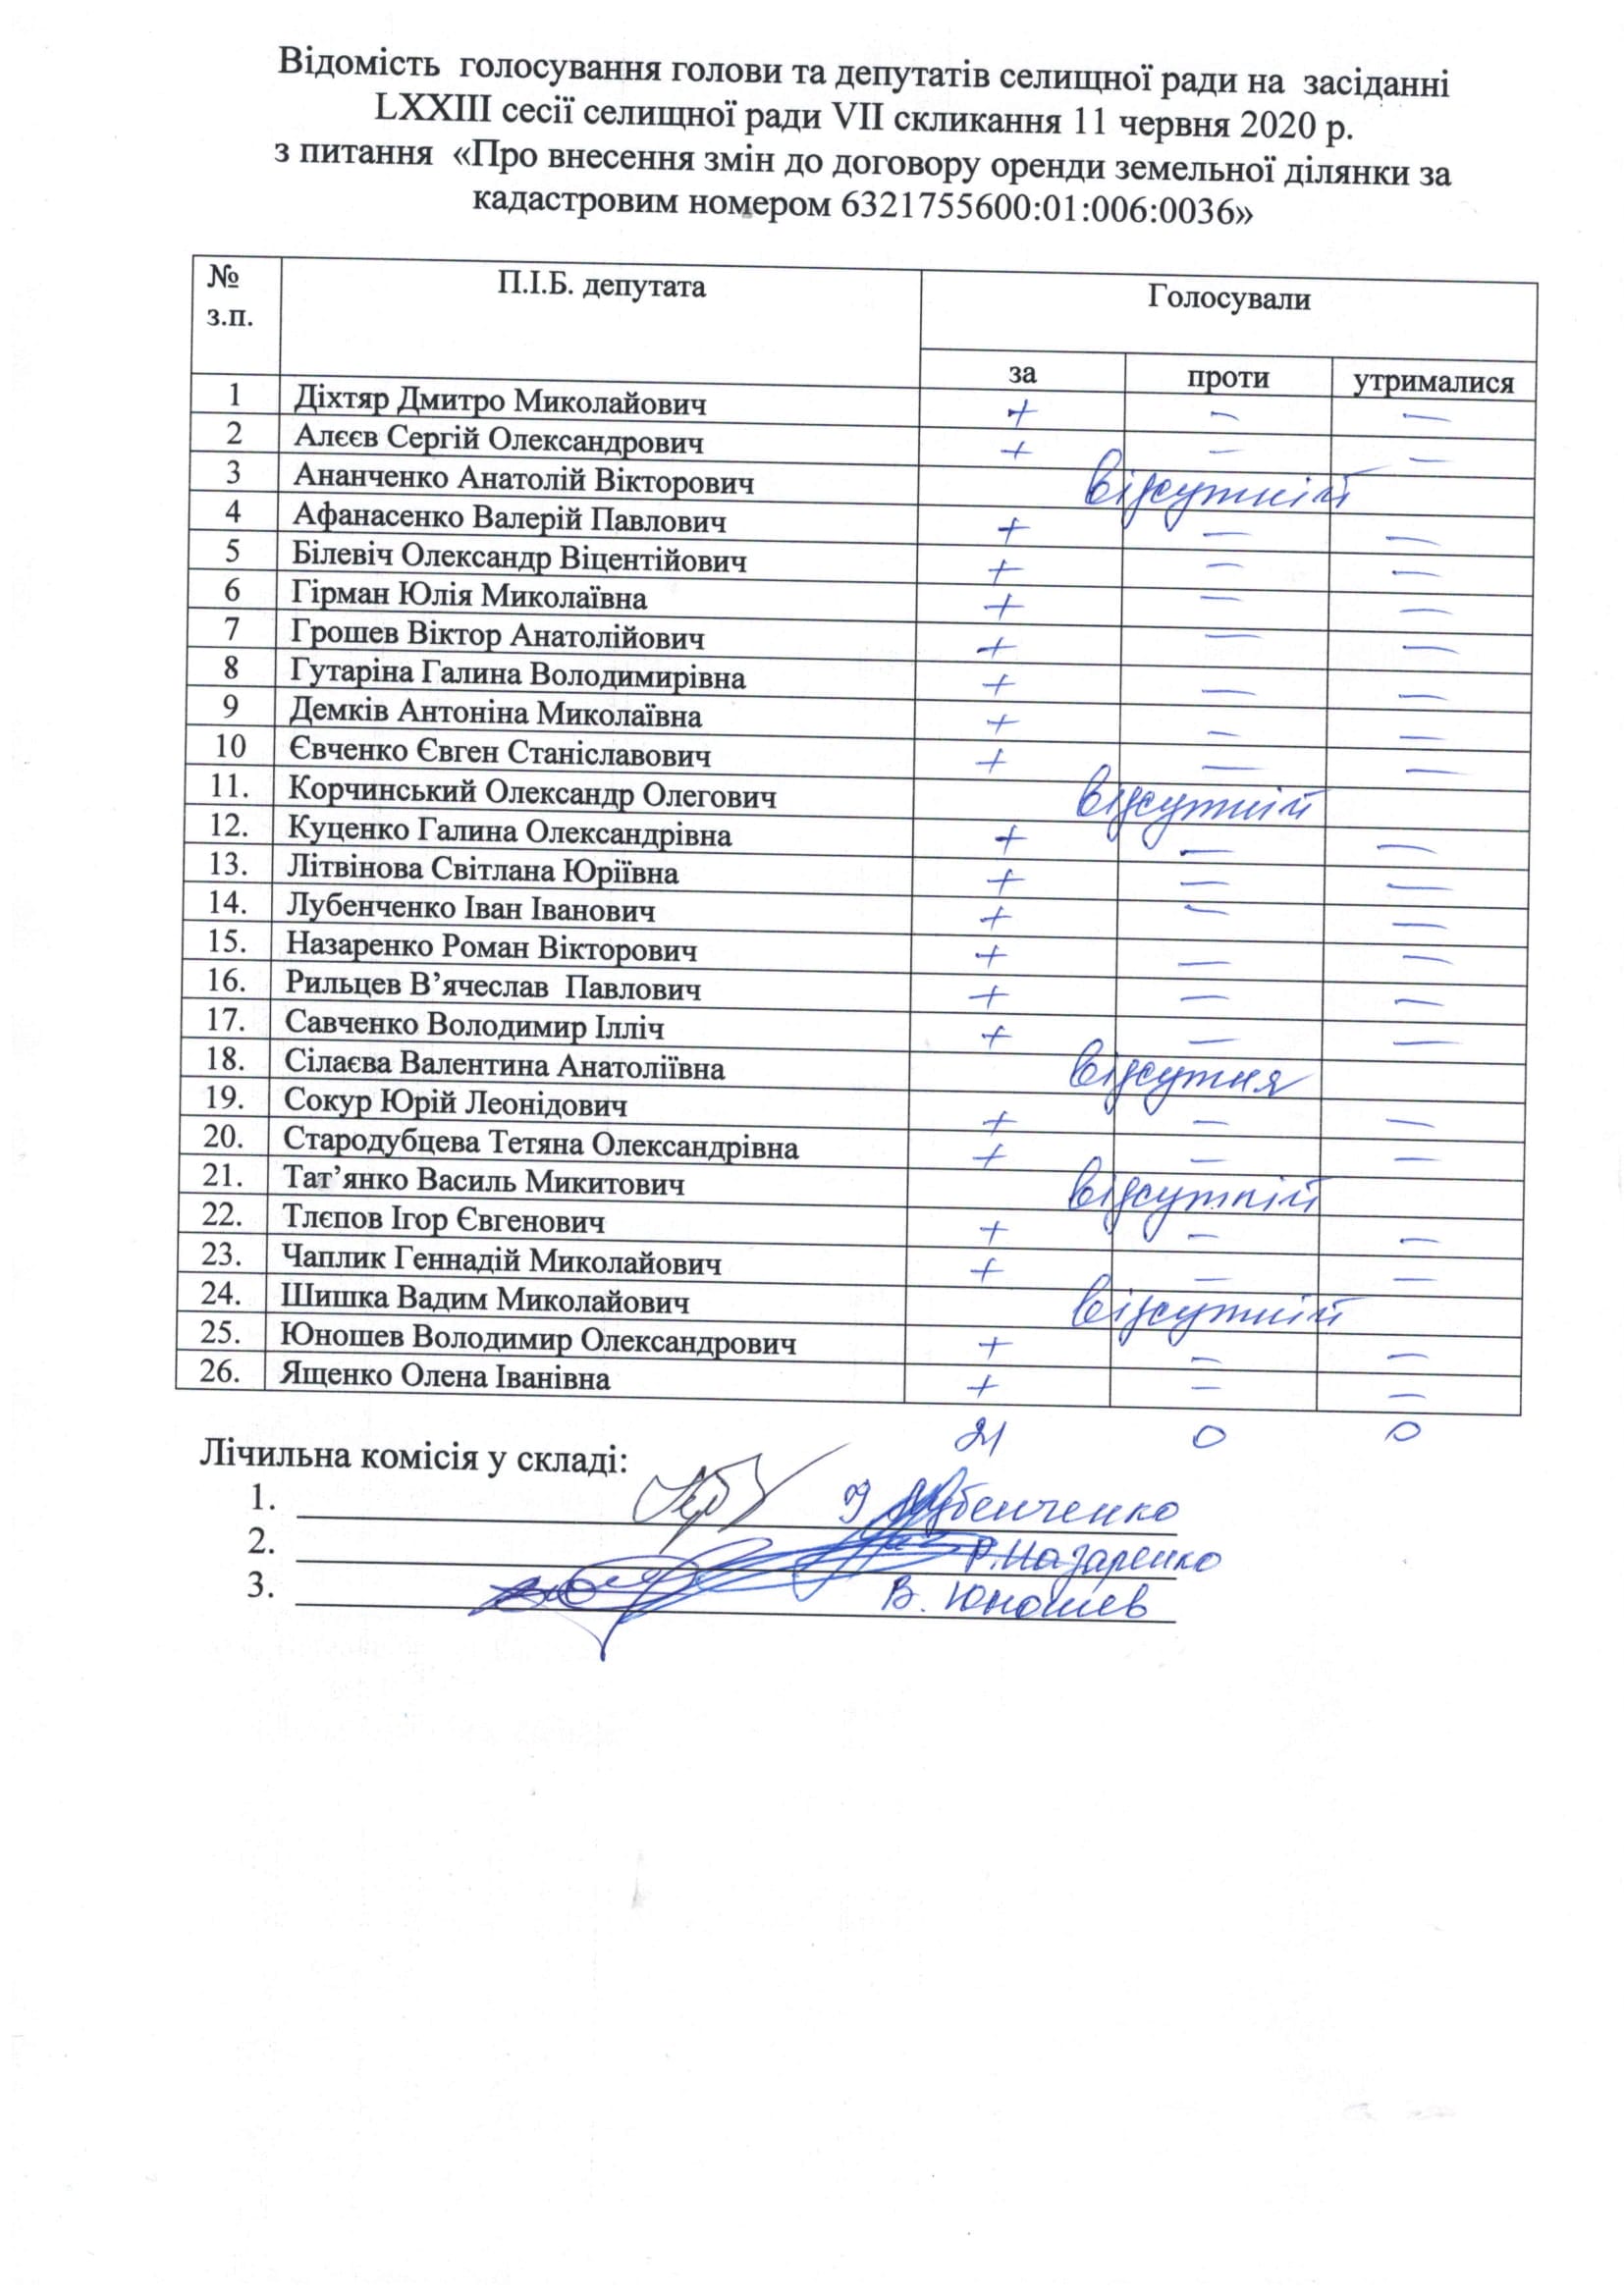 Відомість голосування голови та депутатів селищної ради на засіданні
LXXIII сесії селищної ради VII скликання 11 червня 2020 р.
з питання «Про внесення змін до договору оренди земельної ділянки за
кадастровим номером 6321755600:01:006:0036»
№ з.п. П.І.Б. депутата Голосували
за проти утрималися
1 Діхтяр Дмитро Миколайович + – –
2 Алєєв Сергій Олександрович + – –
3 Ананченко Анатолій Вікторович відсутній
4 Афанасенко Валерій Павлович + – –
5 Білевіч Олександр Віцентійович + – –
6 Гірман Юлія Миколаївна + – –
7 Грошев Віктор Анатолійович + – –
8 Гутаріна Галина Володимирівна + – –
9 Демків Антоніна Миколаївна + – –
10 Євченко Євген Станіславович + – –
11. Корчинський Олександр Олегович відсутній
12. Куценко Галина Олександрівна + – –
13. Літвінова Світлана Юріївна + – –
14. Лубенченко Іван Іванович + – –
15. Назаренко Роман Вікторович + – –
16. Рильцев В’ячеслав Павлович + – –
17. Савченко Володимир Ілліч + – –
18. Сілаєва Валентина Анатоліївна відсутня
19. Сокур Юрій Леонідович + – –
20. Стародубцева Тетяна Олександрівна + – –
21. Тат’янко Василь Микитович відсутній
22. Тлєпов Ігор Євгенович + – –
23. Чаплик Геннадій Миколайович + – –
24. Шишка Вадим Миколайович відсутній
25. Юношев Володимир Олександрович + – –
26. Ященко Олена Іванівна + – –
21 0 0
Лічильна комісія у складі:
1. І Лубенченко
2. Р. Назаренко
3. В. Юношев